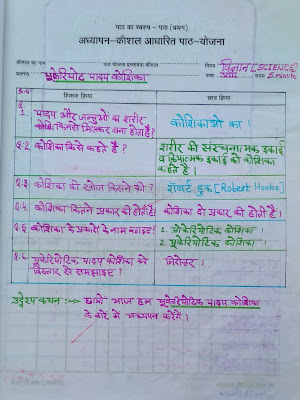 पाठ का स्वरूप - पाठ (प्रथम)
अध्यापन-कौशल आधारित पाठ-योजना
कौशल का नाम पाठ योजना प्रस्तावना कौशल विषय विज्ञान [SCIENCE]
प्रकरण यूकेरियोट पादप कोशिका कक्षा VIII समय 5 minute
शिक्षक क्रिया छात्र क्रिया
1. पादप और जन्तुओं का शरीर कोशिकाओ का ।
किससे मिलकर बना होता है?
Q.2 कोशिका किसे कहते है ? शरीर की संरचनात्मक इकाई
व क्रियात्मक इकाई को कोशिका
कहते है ।
Q.3 कोशिका की खोज किसने की ? राबर्ट हुक [Robert Hooke]
Q.4 कोशिका कितने प्रकार की होती है। कोशिका दो प्रकार की होती है ।
Q.5 कोशिका के प्रकारो के नाम बताइए 1. प्रोकेरियोटिक कोशिका ।
2. यूकेरियोटिक कोशिका ।
Q.6 यूकेरियोटिक पादप कोशिका को निरुत्तर ।
विस्तार से समझाइए ?
उद्देश्य कथन :- छात्रो आज हम यूकेरियोटिक पादप कोशिका
के बारे में अध्ययन करेंगे ।